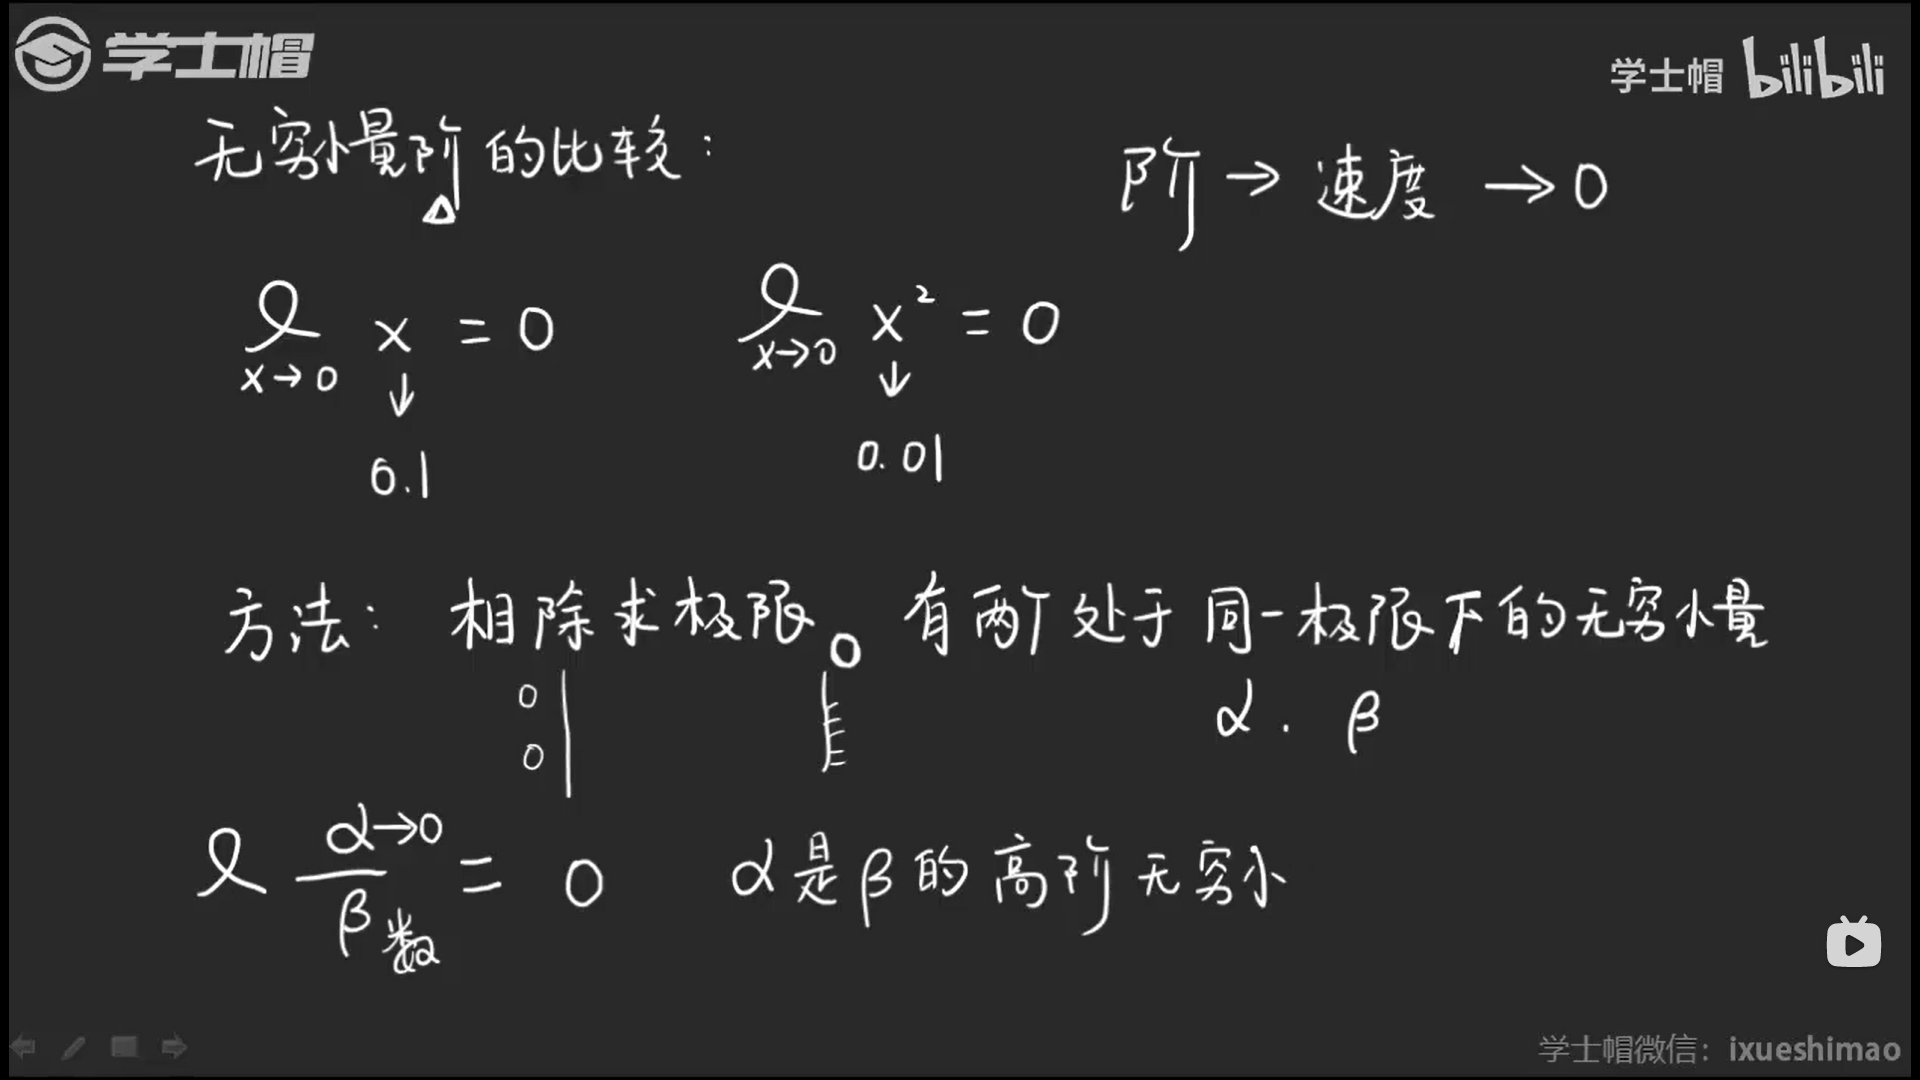 学士帽
学士帽 bilibili
无穷小量阶的比较:
阶→速度→0
lim x = 0
x→0
↓
0.1
lim x² = 0
x→0
↓
0.01
方法: 相除求极限。有两个处于同一极限下的无穷小量
0
0
α. β
lim α→0 / β 数 = 0 α是β的高阶无穷小
学士帽微信: ixueshimao